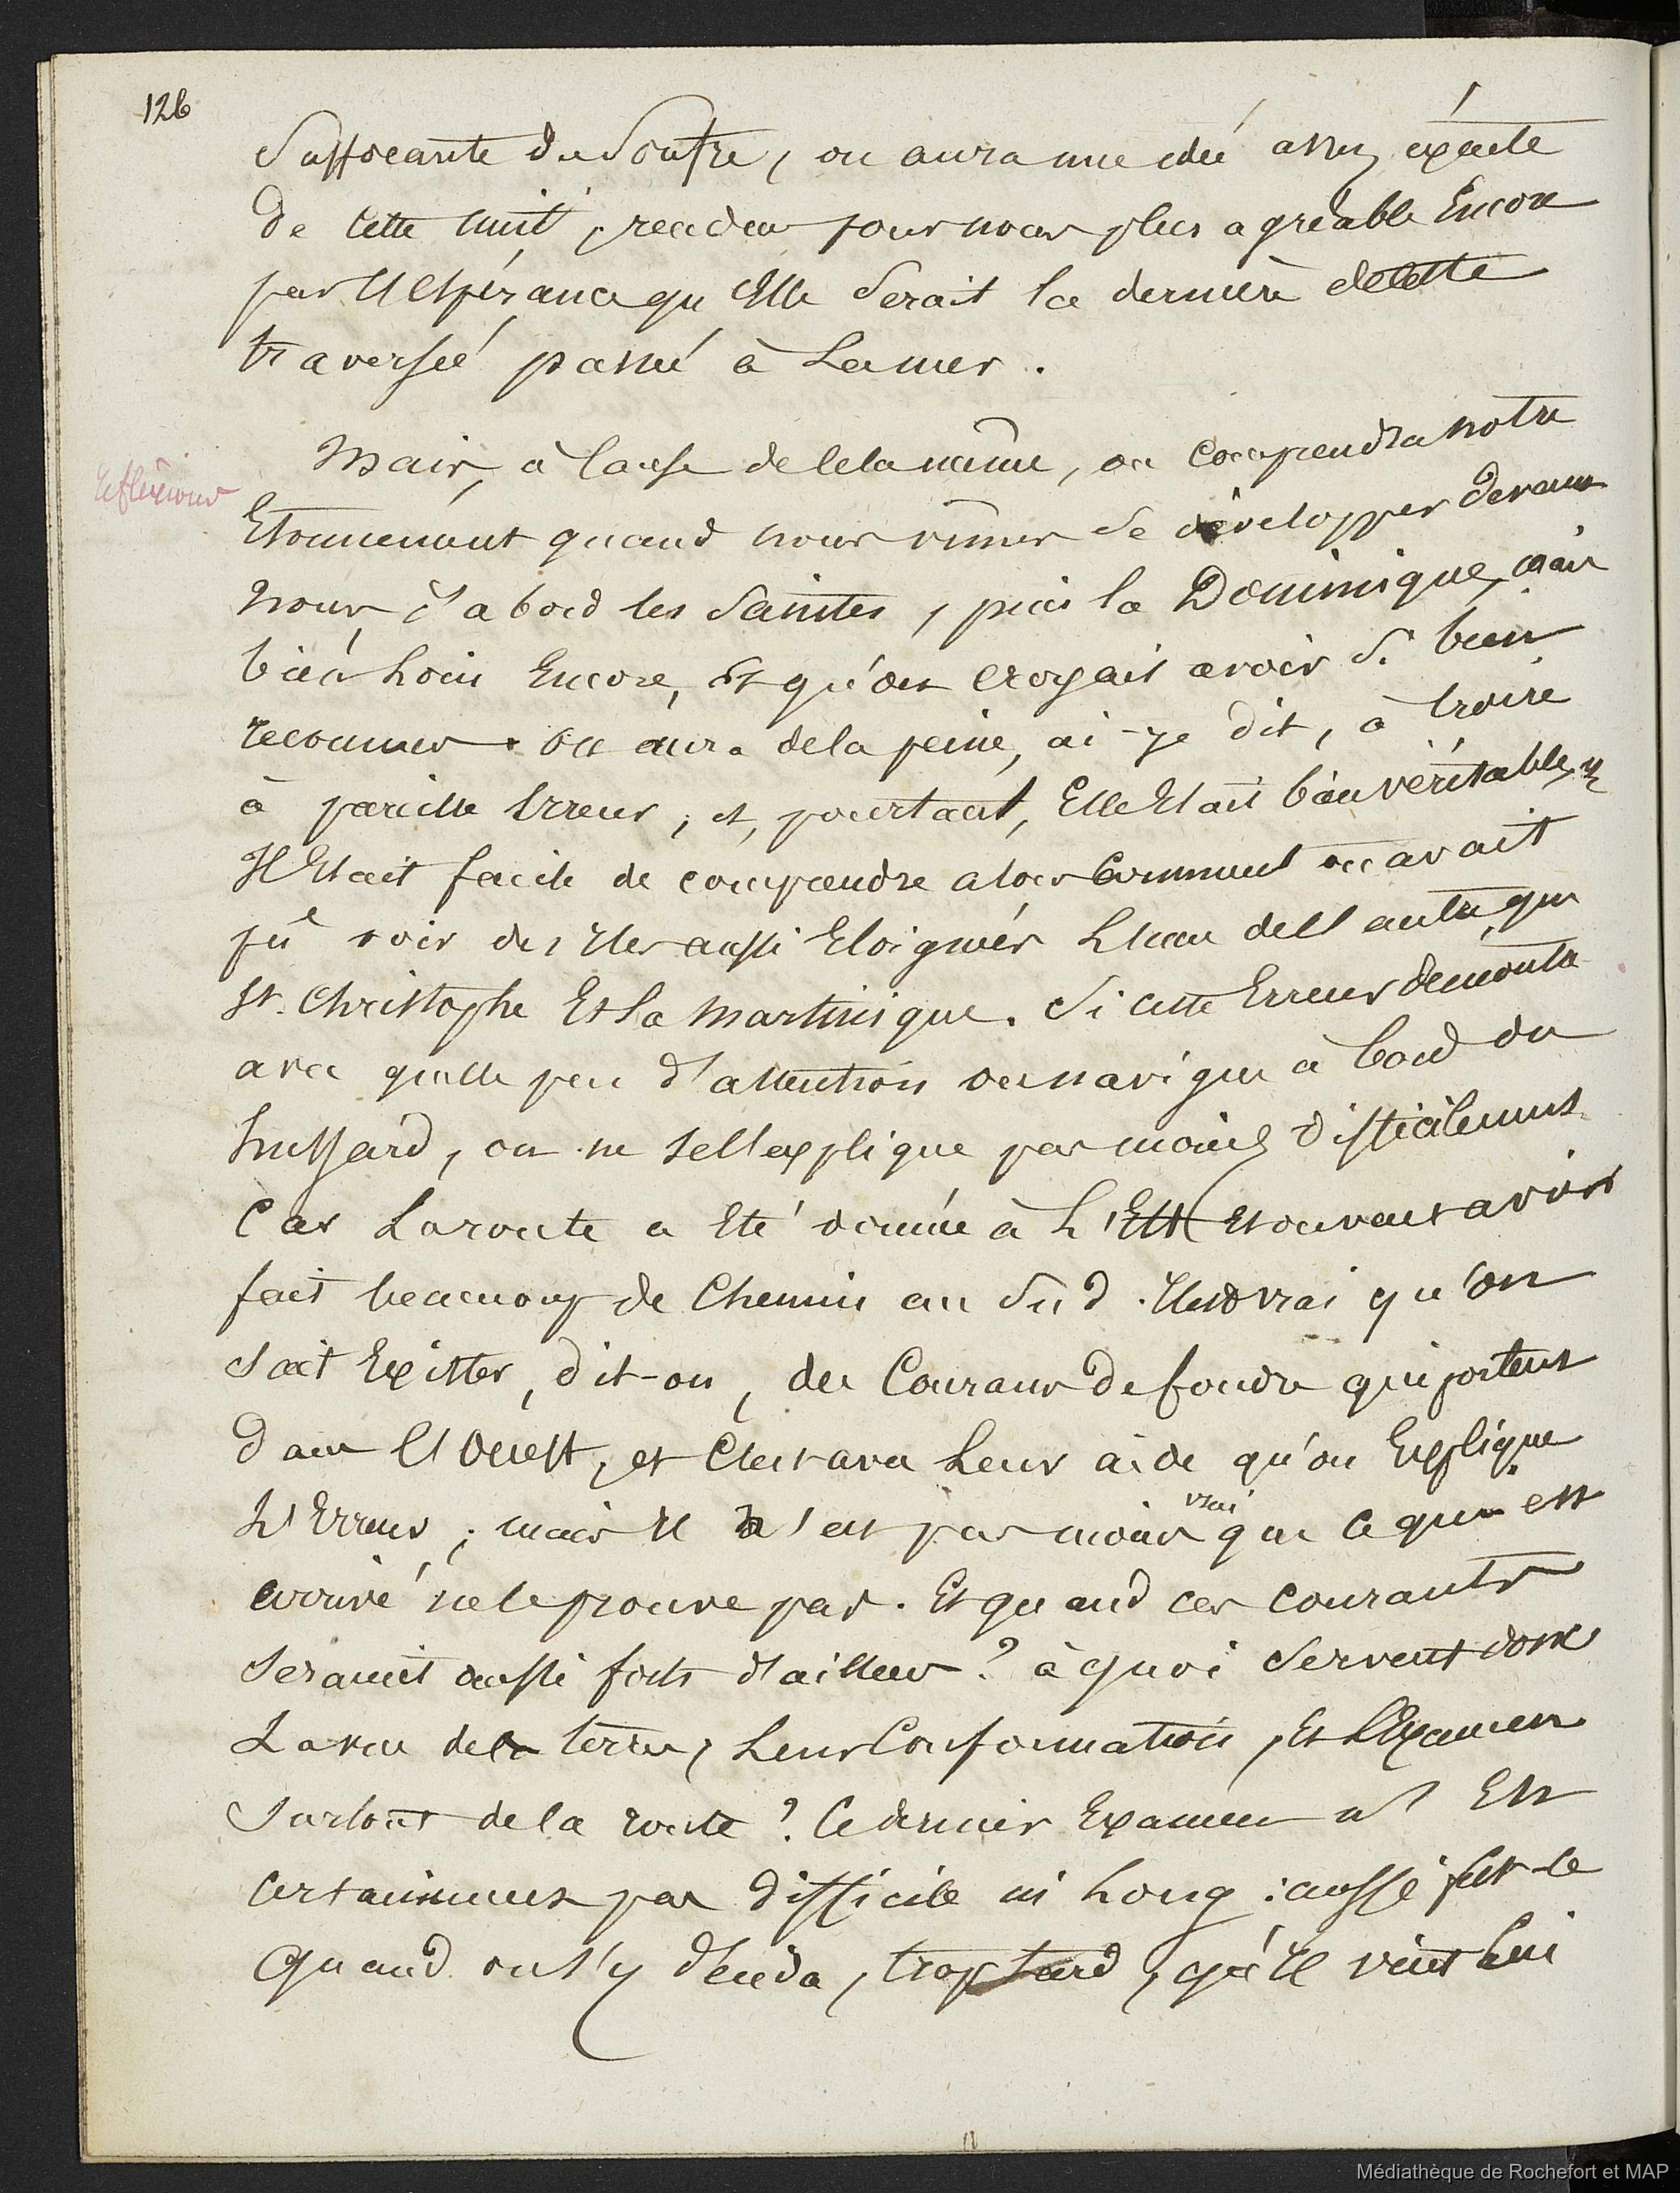 126
Suffocante du Soufre, on aura une idée assez éxacte
de cette nuit, rendue pour nous plus agréable Encore
par l'Espérance qu'Elle Serait la dernière de cette
traversée passée à La mer.
Mais, à cause de cela même, on comprendra notre
Réfléxions
Etonnement quand nous vîmes se développer devant
nous d'abord les Saintes, puis la Dominique, mais
bien Loin Encore, Et qu'on croyait avoir Si bien
reconnues. On aura de la peine, ai-je dit, à croire
à pareille Erreur, et, pourtant, Elle Etait bien véritable, Et
Il Etait facile de comprendre alors comment on avait
pû voir des Iles aussi Eloignées L'une de l'autre, que
St. Christophe Et La Martinique. Si cette Erreur démontre
avec quelle peu d'attention on navigue à bord du
hussard, on ne se l'explique pas moins difficilement
Car La route a Eté donnée à L'Est Et on veut avoir
fait beaucoup de Chemin au Sud. Il est vrai qu'on
sait Exister, dit-on, des Courans de foudre qui portent
dans l'Ouest, et C'est avec Leur aide qu'on Explique
L'Erreur; mais Il n'est pas moins vrai que ce qui est
arrivé ne le prouve pas. Et quand ces courants
Seraient aussi forts d'ailleurs? à quoi Servent donc
La vue de la terre, Leur Conformation, Et L'Examen
Surtout de la route? Ce dernier Examen n'Est
Certainement pas difficile ni Long: aussi fut-ce
Quand on s'y décida, trop tard, qu'Il vint lui
Médiathèque de Rochefort et MAP